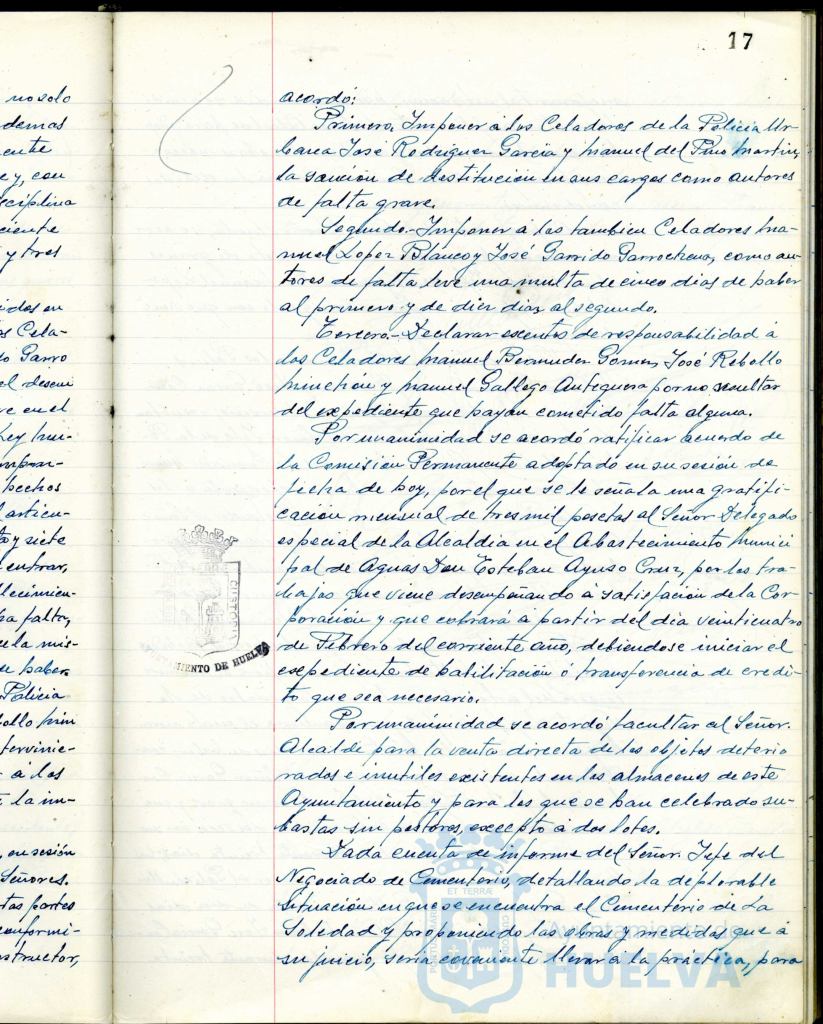 no solo
demas
ente
ey, con
sciplina
ciente
y tres
idos en
s Cela-
o Garro
el desem
re en el
Ley
pechos
articu-
to y siete
entrar,
a falta,
de la mis-
de haber
Policia
bollo
tervinie-
a los
la im-
en sesión
Señores.
tas partes
conformi-
structor,
17
acordó:
Primero. Imponer a los Celadores de la Policia Ur-
bana José Rodriguez Garcia y Manuel del Pino Martin,
la sanción de destitución en sus cargos como autores
de falta grave.
Segundo.- Imponer a los tambien Celadores Ma-
nuel Lopez Blanco y José Garrido Garrochena, como au-
tores de falta leve una multa de cinco dias de haber
al primero y de diez dias al segundo.
Tercero.- Declarar exentos de responsabilidad á
los Celadores Manuel Bermudez Gómez, José Rebollo
Minchón y Manuel Gallego Antequera por no resultar
del expediente que hayan cometido falta alguna.
Por unanimidad se acordó ratificar acuerdo de
la Comisión Permanente adoptado en su sesión de
fecha de hoy, por el que se le señala una gratifi-
cación mensual de tres mil pesetas al Señor Delegado
especial de la Alcaldia en el Abastecimiento Munici
pal de Aguas Don Esteban Ayuso Cruz, por los tra-
bajos que viene desempeñando á satisfación de la Cor
poración y que cobrará á partir del dia veinticuatro
de Febrero del corriente año, debiendose iniciar el
expediente de habilitación ó transferencia de credi-
to que sea necesario.
Por unanimidad se acordó facultar al Señor
Alcalde para la venta directa de los objetos deterio
rados e inutiles existentes en los almacenes de este
Ayuntamiento y para los que se han celebrado su-
bastas sin postores, excepto á dos lotes.
Dada cuenta de informe del Señor Jefe del
Negociado de Cementerio, detallando la deplorable
situación en que se encuentra el Cementerio de La
Soledad y proponiendo las obras y medidas que á
su juicio, seria conveniente llevar a la práctica, para
CUSTODIA
MIENTO DE HUELVA
ET TERRAE
PORTUS MARIS
CUSTODIA
Ayuntamiento de
HUELVA